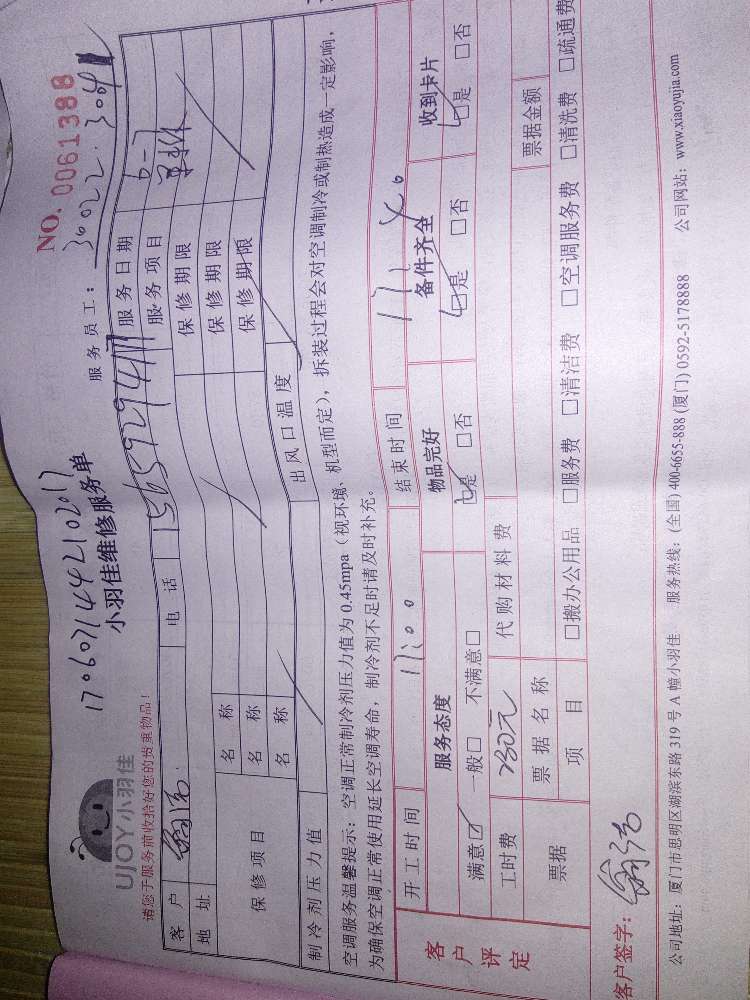 NO. 0061388
1706071442102017
UJOY小羽佳
小羽佳维修服务单
服务员工： 30022. 3081
请您于服务前收拾好您的贵重物品！
客户 电话 服务日期 6-7
地址 服务项目
保修项目 名称 保修期限
名称 保修期限
名称 保修期限
制冷剂压力值 出风口温度
空调服务温馨提示：空调正常制冷剂压力值为 0.45mpa（视环境、机型而定），拆装过程会对空调制冷或制热造成一定影响，
为确保空调正常使用延长空调寿命，制冷剂不足时请及时补充。
客户评定 开工时间 17:00 结束时间 17:40
服务态度 物品完好 备件齐全 收到卡片
满意☑ 一般□ 不满意□ ☑是 □否 ☑是 □否 ☑是 □否
工时费 780元 代购材料费
票据 票据名称 票据金额
项目 □搬办公用品 □服务费 □清洁费 □空调服务费 □清洗费 □疏通费
客户签字：
公司地址：厦门市思明区湖滨东路 319 号 A 幢小羽佳 服务热线：(全国) 400-6655-888 (厦门) 0592-5178888 公司网站：www.xiaoyujia.com